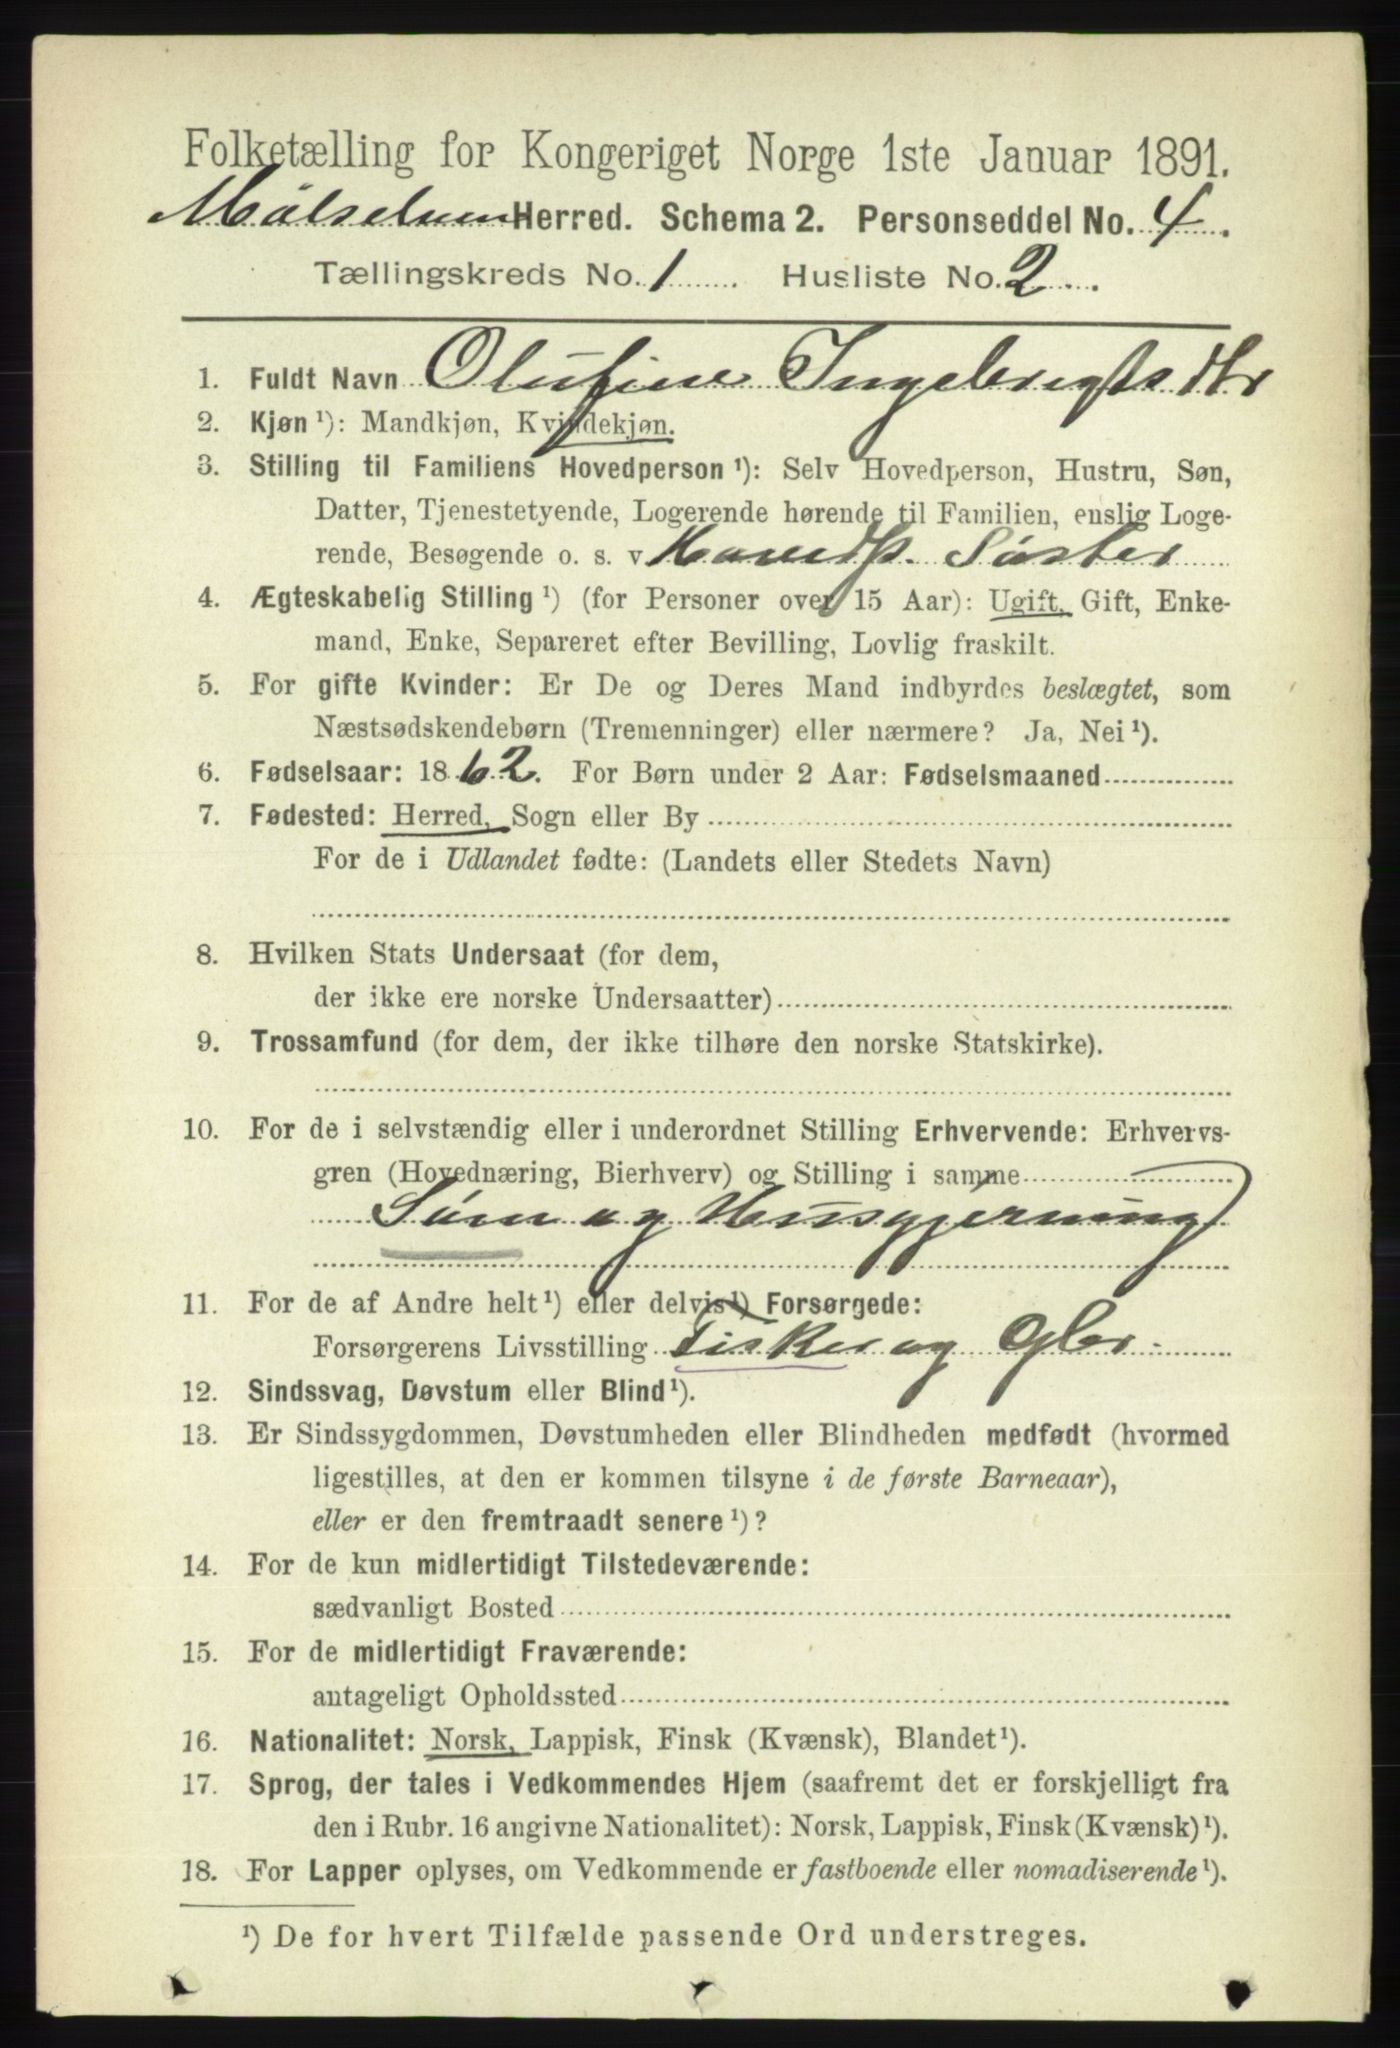 Folketælling for Kongeriget Norge 1ste Januar 1891.
Målselven Herred. Schema 2. Personseddel No. 4.
Tællingskreds No. 1. Husliste No. 2.
1. Fuldt Navn Olufine Ingebrigtsdtr
2. Kjøn ¹): Mandkjøn, Kvindekjøn.
3. Stilling til Familiens Hovedperson ¹): Selv Hovedperson, Hustru, Søn,
Datter, Tjenestetyende, Logerende hørende til Familien, enslig Loge-
rende, Besøgende o. s. v Hovedp. Søster
4. Ægteskabelig Stilling ¹) (for Personer over 15 Aar): Ugift, Gift, Enke-
mand, Enke, Separeret efter Bevilling, Lovlig fraskilt.
5. For gifte Kvinder: Er De og Deres Mand indbyrdes beslægtet, som
Næstsødskendebørn (Tremenninger) eller nærmere? Ja, Nei ¹).
6. Fødselsaar: 1862. For Børn under 2 Aar: Fødselsmaaned
7. Fødested: Herred, Sogn eller By
For de i Udlandet fødte: (Landets eller Stedets Navn)
8. Hvilken Stats Undersaat (for dem,
der ikke ere norske Undersaatter)
9. Trossamfund (for dem, der ikke tilhøre den norske Statskirke).
10. For de i selvstændig eller i underordnet Stilling Erhvervende: Erhvervs-
gren (Hovednæring, Bierhverv) og Stilling i samme
Søm og Husgjerning
11. For de af Andre helt ¹) eller delvis ¹) Forsørgede:
Forsørgerens Livsstilling Fisker og Gbr.
12. Sindssvag, Døvstum eller Blind ¹).
13. Er Sindssygdommen, Døvstumheden eller Blindheden medfødt (hvormed
ligestilles, at den er kommen tilsyne i de første Barneaar),
eller er den fremtraadt senere ¹)?
14. For de kun midlertidigt Tilstedeværende:
sædvanligt Bosted
15. For de midlertidigt Fraværende:
antageligt Opholdssted
16. Nationalitet: Norsk, Lappisk, Finsk (Kvænsk), Blandet ¹).
17. Sprog, der tales i Vedkommendes Hjem (saafremt det er forskjelligt fra
den i Rubr. 16 angivne Nationalitet): Norsk, Lappisk, Finsk (Kvænsk) ¹).
18. For Lapper oplyses, om Vedkommende er fastboende eller nomadiserende ¹).
¹) De for hvert Tilfælde passende Ord understreges.